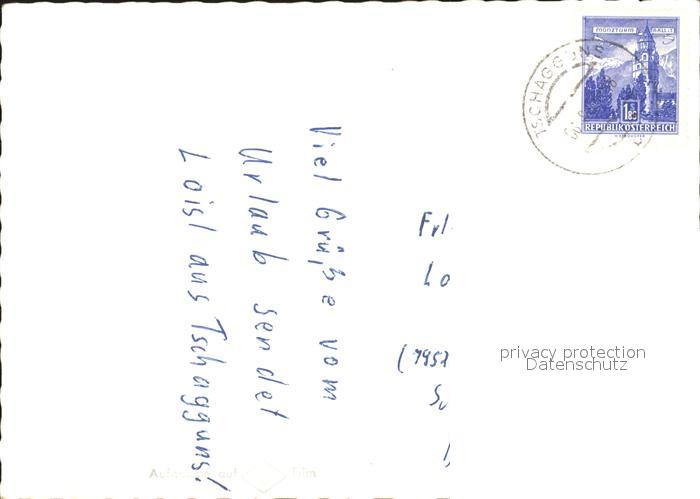 MÜNZTURM HALL I. T.
1.80
REPUBLIK ÖSTERREICH
TSCHAGGUNS
Viel Grüße vom
Urlaub sendet
Loisl aus Tschagguns!
Frl.
Lo
privacy protection
Datenschutz
Film